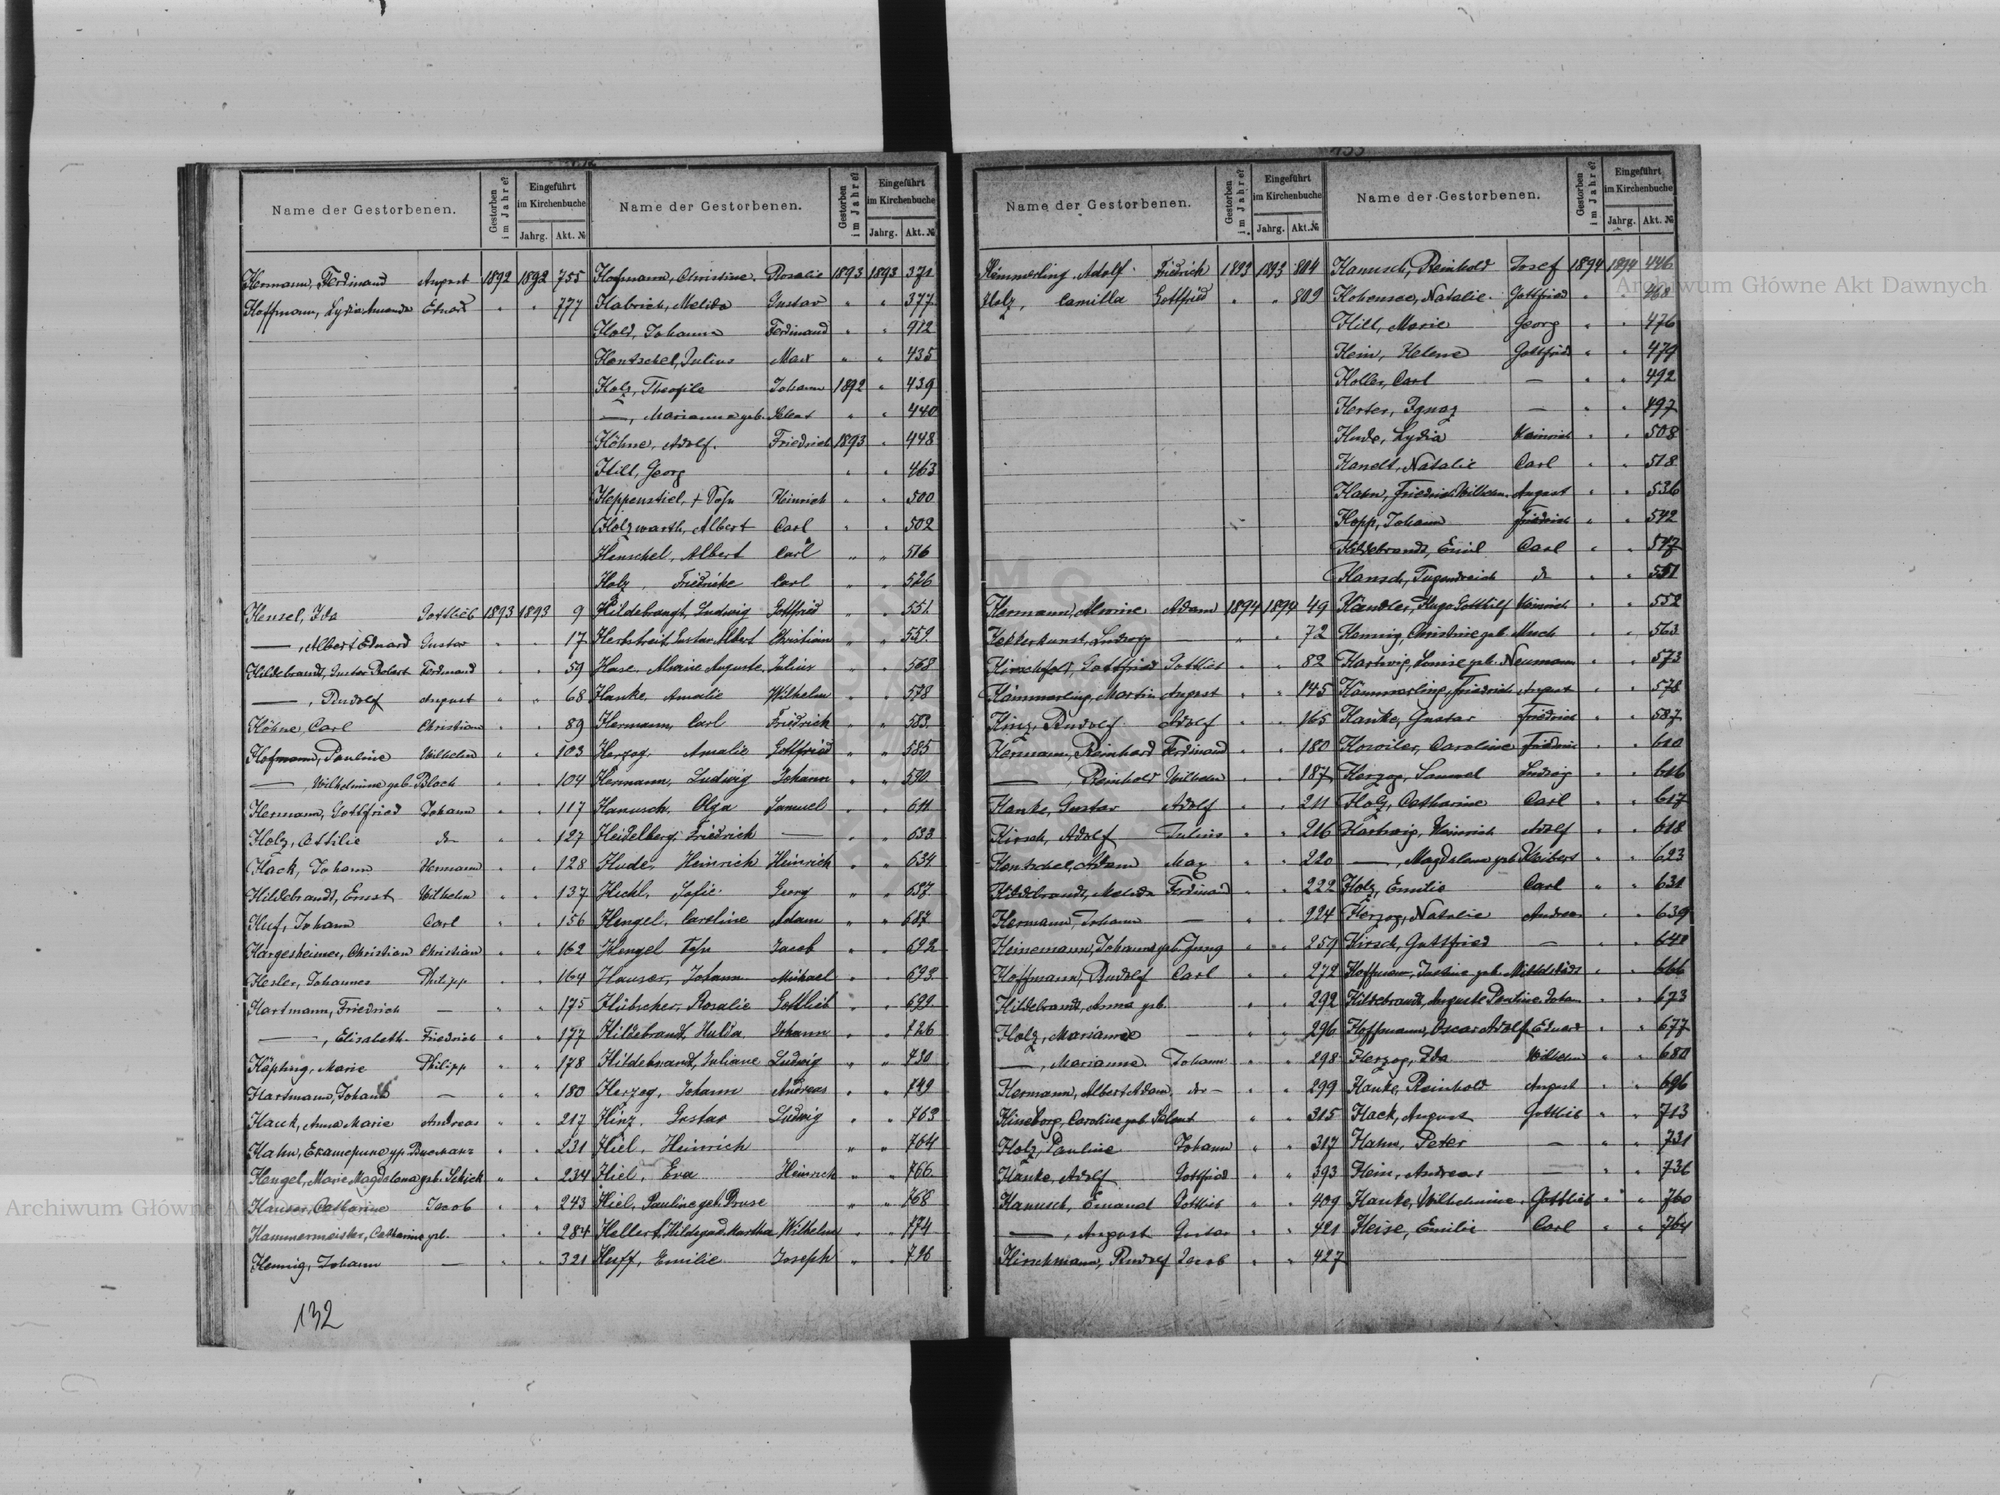 Name der Gestorbenen. Gestorben im Jahre? Eingeführt im Kirchenbuche Jahrg. Akt. №
Hermann, Ferdinand August 1892 1892 755
Hoffmann, Lydia Amanda Eduard " " 777
Hensel, Ida Gottlieb 1893 1893 9
—, Albert Eduard Gustav " " 17
Hildebrandt, Gustav Robert Ferdinand " " 59
—, Rudolf August " " 68
Höhne, Carl Christian " " 89
Hofmann, Pauline Wilhelm " " 103
—, Wilhelmine geb. Bloch " " 104
Hermann, Gottfried Johann " " 117
Holz, Ottilie do " " 127
Hack, Johann Hermann " " 128
Hildebrandt, Ernst Wilhelm " " 137
Huf, Johann Carl " " 156
Hargesheimer, Christian Christian " " 162
Hesler, Johannes Philipp " " 164
Hartmann, Friedrich — " " 175
—, Elisabeth Friedrich " " 177
Marie Philipp " " 178
Hartmann, Johann — " " 180
Hauk, Anna Marie Andreas " " 217
Hahn, " " 231
Hengel, Marie Magdalena geb. Schick " " 234
Hauser, Catharine Jacob " " 243
Hammermeister, Catharine geb. " " 284
Hennig, Johann — " " 321
132
Name der Gestorbenen. Gestorben im Jahre? Eingeführt im Kirchenbuche Jahrg. Akt. №
Hofmann, Christine Rosalie 1893 1893 371
Habrich, Melida Gustav " " 377
Hold, Johanna Ferdinand " " 412
Hentschel, Julius Max " " 435
Holz, Theofile Johann 1892 " 439
—, Marianna geb. " " 440
Höhne, Adolf Friedrich 1893 " 448
Hill, Georg " " 463
Heppenstiel, + Sohn Heinrich " " 500
Holzwarth, Albert Carl " " 502
Henschel, Albert Carl " " 516
Holz, Friedrike Carl " " 526
Hildebrandt, Ludwig Gottfried " " 551
Herbstreit, Gustav Albert Christian " " 559
Hase, Alwine Auguste Julius " " 568
Hanke, Amalie Wilhelm " " 578
Hermann, Carl Friedrich " " 583
Herzog, Amalie Gottfried " " 585
Hermann, Ludwig Johann " " 590
Hanusch, Olga Samuel " " 611
Heidelberg, Friedrich — " " 633
Hude, Heinrich Heinrich " " 634
Hickl, Sofie Georg " " 637
Hengel, Caroline Adam " " 687
Hengel, Sohn Jacob " " 692
Hauser, Johann Michael " " 693
Hübscher, Rosalie Gottlieb " " 699
Hildebrandt, Hulda Johann " " 726
Hildebrandt, Juliane Ludwig " " 730
Herzog, Johann Andreas " " 749
Hinz, Gustav Ludwig " " 763
Hiel, Heinrich " " 764
Hiel, Eva Heinrich " " 766
Hiel, Pauline geb. Druse " " 768
Hellert, Hildegard Martha Wilhelm " " 774
Huff, Emilie Joseph " " 796
Name der Gestorbenen. Gestorben im Jahre? Eingeführt im Kirchenbuche Jahrg. Akt. №
Hemmerling, Adolf Friedrich 1893 1893 804
Holz, Camilla Gottfried " " 809
Hermann, Alwine Adam 1894 1894 49
Ludwig — " " 72
Gottfried Gottlieb " " 82
Hämmerling, Martin August " " 145
Hinz, Rudolf Adolf " " 165
Hermann, Reinhard Ferdinand " " 180
—, Reinhold Wilhelm " " 187
Hanke, Gustav Adolf " " 211
Hirsch, Adolf Julius " " 216
Hentschel, Adam Max " " 220
Hildebrandt, Melida Ferdinand " " 222
Hermann, Johann — " " 224
Heinemann, Johanna geb. Jung " " 259
Hoffmann, Rudolf Carl " " 272
Hildebrandt, Anna geb. " " 292
Holz, Marianne — " " 296
—, Marianna Johann " " 298
Hermann, Albert Adam do " " 299
Caroline geb. " " 315
Holz, Pauline Johann " " 317
Hanke, Adolf Gottfried " " 393
Hanusch, Emanuel Gottlieb " " 409
—, August Gustav " " 421
Hirschmann, Rudolf Jacob " " 427
Name der Gestorbenen. Gestorben im Jahre? Eingeführt im Kirchenbuche Jahrg. Akt. №
Hanusch, Reinhold Josef 1894 1894 446
Hohensee, Natalie Gottfried " " 468
Hill, Marie Georg " " 476
Hein, Helene Gottfried " " 479
Holler, Carl — " " 492
Herter, Ignaz — " " 497
Hude, Lydia Heinrich " " 508
Handt, Natalie Carl " " 518
Hahn, Friedrich Wilhelm August " " 536
Hopp, Johann Friedrich " " 542
Hildebrandt, Emil Carl " " 547
Hansch, Tugendreich do " " 551
Händler, Hugo Gotthilf Heinrich " " 552
Hennig, Christine geb. Much " " 563
Hartwig, Louise geb. Neumann " " 573
Hämmerling, Friedrich August " " 578
Hanke, Gustav Friedrich " " 587
Caroline Friedrich " " 610
Herzog, Samuel Ludwig " " 616
Holz, Catharine Carl " " 617
Hartwig, Heinrich Adolf " " 618
—, Magdalena geb. " " 623
Holz, Emilie Carl " " 631
Herzog, Natalie Andreas " " 639
Hirsch, Gottfried — " " 648
Hoffmann, Justine geb. Mittelstädt " " 666
Hildebrandt, Auguste Pauline Johann " " 673
Hoffmann, Oscar Adolf Eduard " " 677
Herzog, Ida Wilhelm " " 680
Hanke, Reinhold August " " 696
Hack, August Gottlieb " " 713
Hahn, Peter — " " 731
Hein, Andreas — " " 736
Hanke, Wilhelmine Gottlieb " " 760
Heise, Emilie Carl " " 764
Archiwum Główne Akt Dawnych
Archiwum Główne Akt Dawnych